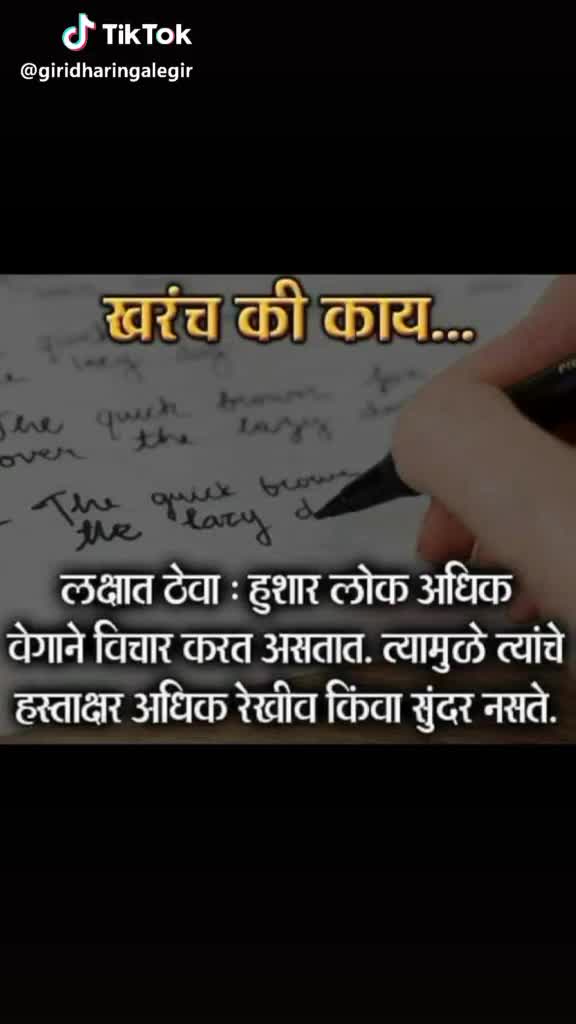 TikTok
@giridharingalegir
खरंच की काय...
The quick brown
over the lazy
The quick brown
the lazy d
लक्षात ठेवा : हुशार लोक अधिक
वेगाने विचार करत असतात. त्यामुळे त्यांचे
हस्ताक्षर अधिक रेखीव किंवा सुंदर नसते.